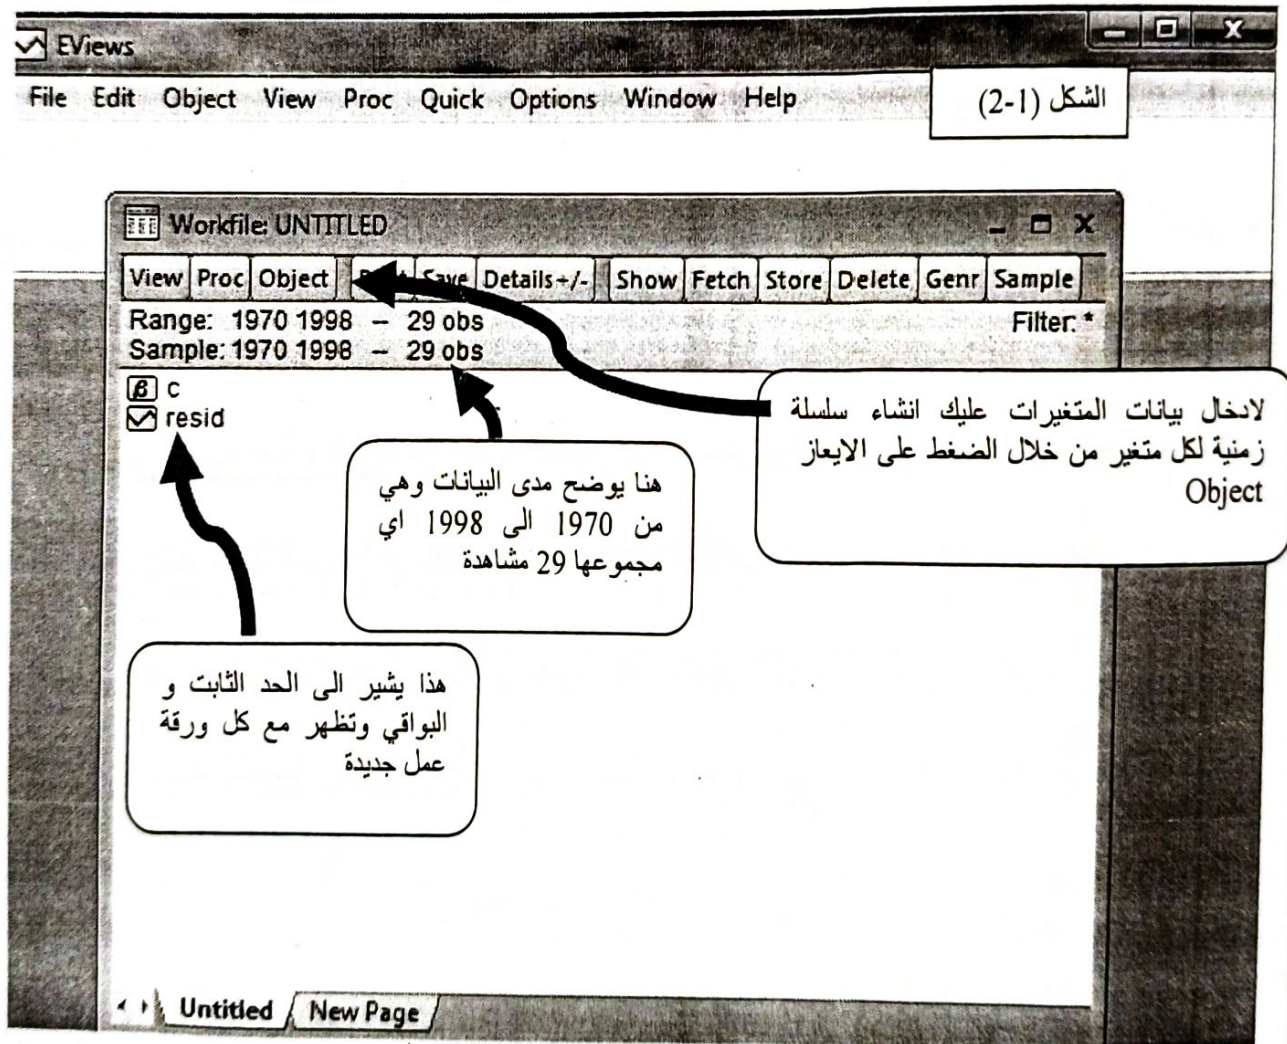 EViews
File Edit Object View Proc Quick Options Window Help
الشكل (1-2)
Workfile: UNTITLED
View Proc Object Save Details+/- Show Fetch Store Delete Genr Sample
Range: 1970 1998 – 29 obs
Filter: *
Sample: 1970 1998 – 29 obs
β c
resid
لادخال بيانات المتغيرات عليك انشاء سلسلة
زمنية لكل متغير من خلال الضغط على الايعاز
Object
هنا يوضح مدى البيانات وهي
من 1970 الى 1998 اي
مجموعها 29 مشاهدة
هذا يشير الى الحد الثابت و
البواقي وتظهر مع كل ورقة
عمل جديدة
Untitled New Page